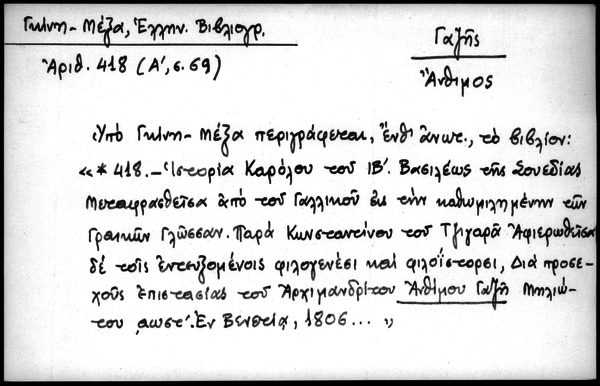 Γκίνη - Μέξα, Ἑλλην. Βιβλιογρ.
Ἀριθ. 418 (Α', σ. 69)
Γαζῆς
Ἄνθιμος
Ὑπὸ Γκίνη - Μέξα περιγράφεται, ἔνθ' ἀνωτ., τὸ βιβλίον:
«* 418. – Ἱστορία Καρόλου τοῦ ΙΒ'. Βασιλέως τῆς Σουεδίας
Μεταφρασθεῖσα ἀπὸ τοῦ Γαλλικοῦ εἰς τὴν καθωμιλημένην τῶν
Γραικῶν Γλῶσσαν. Παρὰ Κωνσταντίνου τοῦ Τζιγαρᾶ Ἀφιερωθεῖσα
δὲ τοῖς ἐντευξομένοις φιλογενέσι καὶ φιλοΐστορσι, Διὰ προσε-
χοῦς ἐπιστασίας τοῦ Ἀρχιμανδρίτου Ἀνθίμου Γαζῆ Μηλιώ-
του ͵αωστ'. Ἐν Βενετίᾳ, 1806 ... »